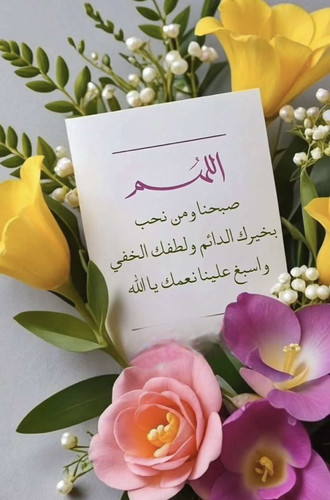 اللهم
صبحنا ومن نحب
بخيرك الدائم ولطفك الخفي
واسبغ علينا نعمك يا الله